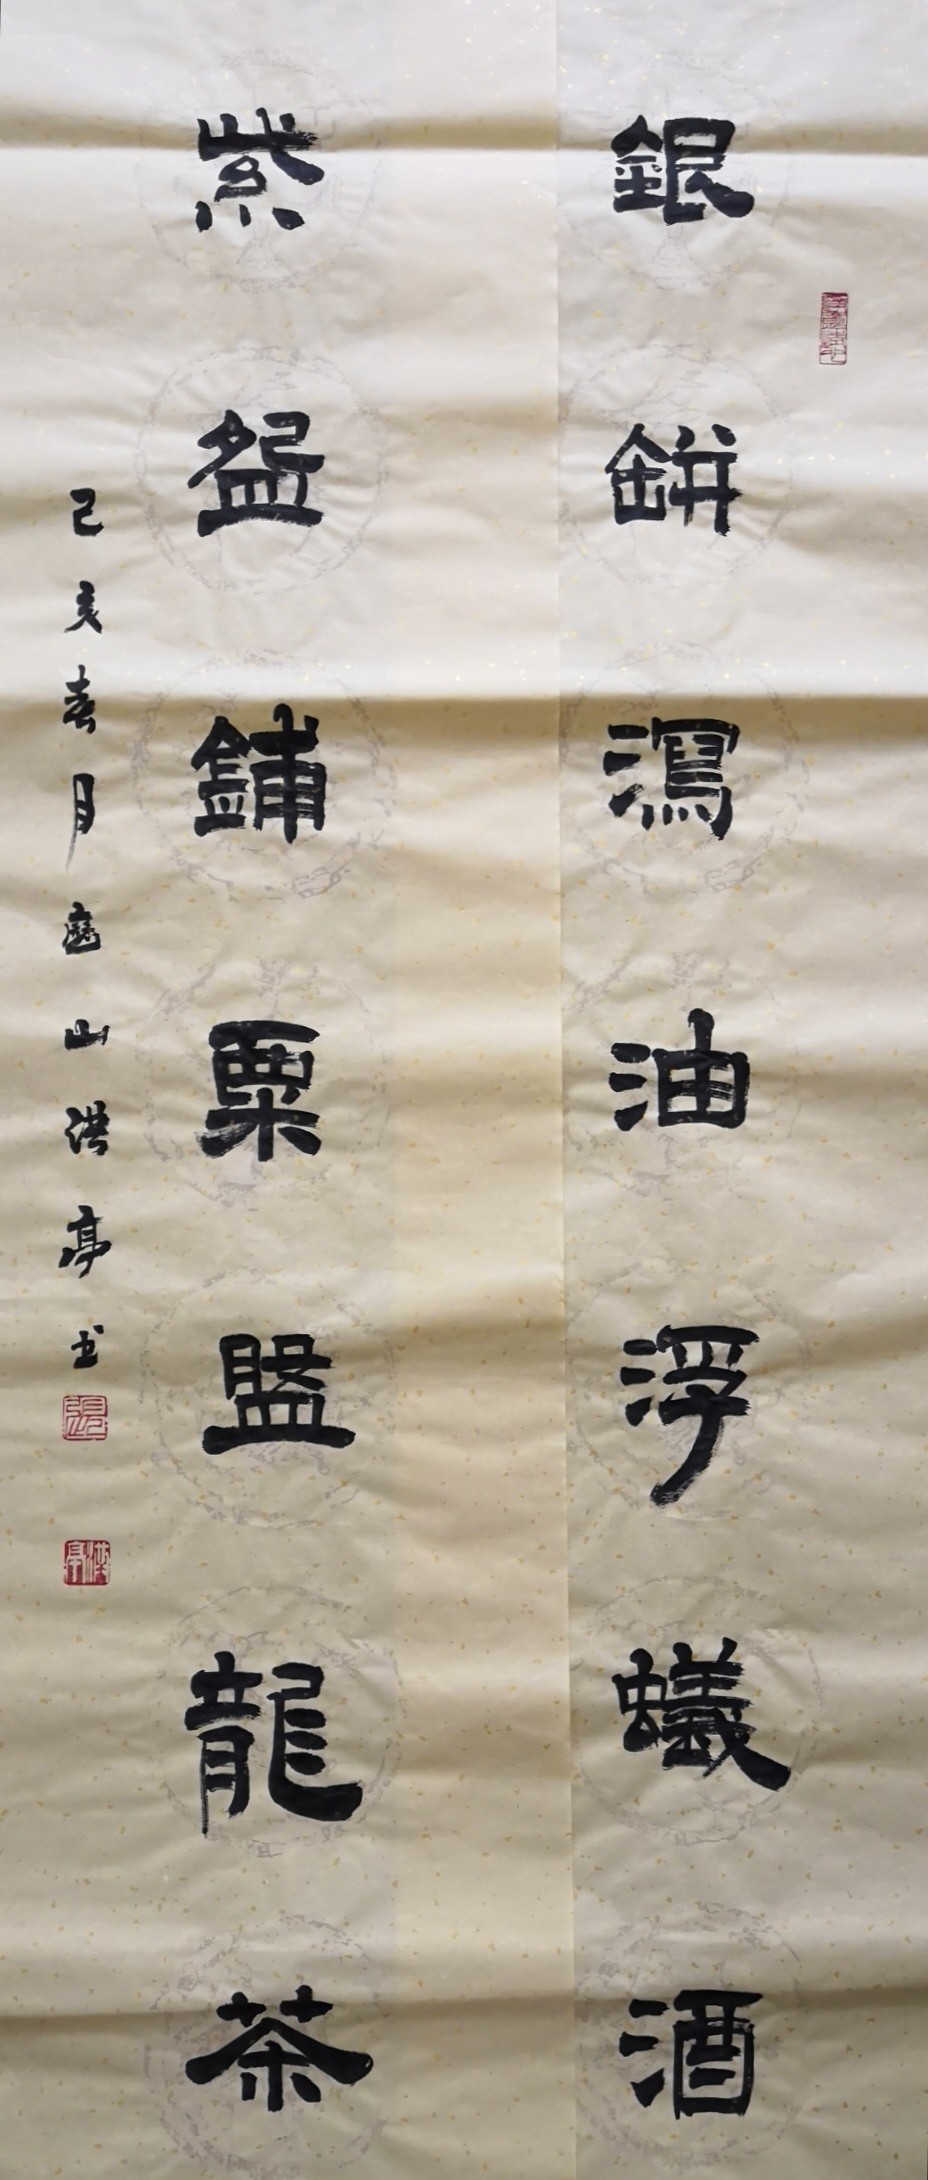 銀缾瀉油浮蟻酒
紫盌鋪粟盤龍茶
己亥春月廬山洪亭书
洪亭